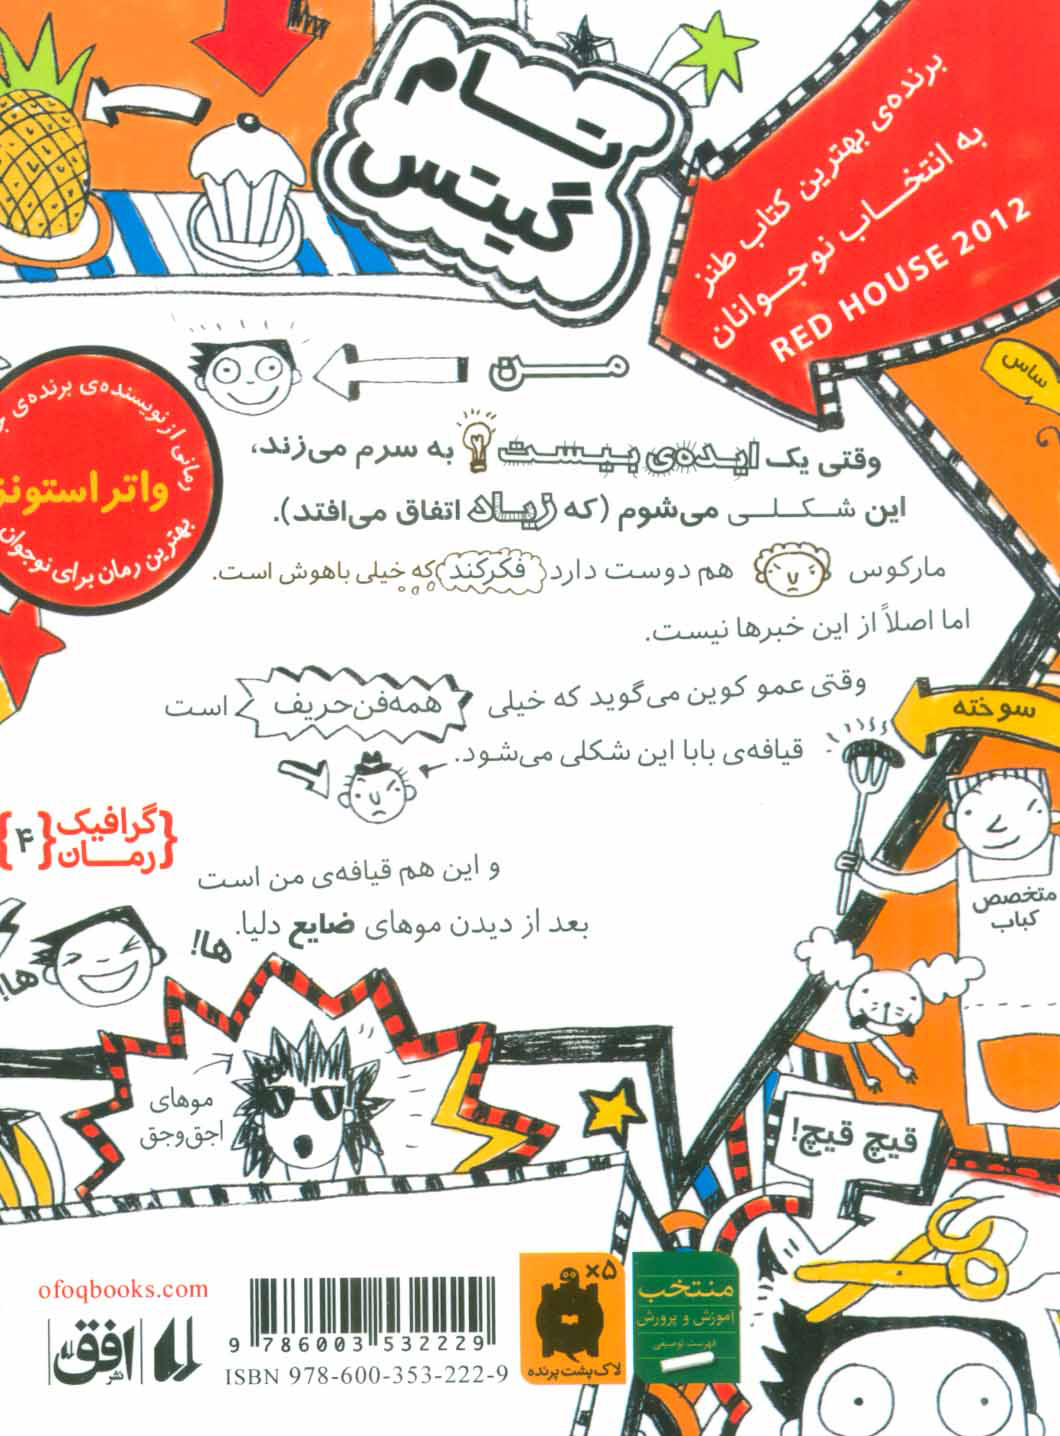 تام
گیتس
برنده‌ی بهترین کتاب طنز
به انتخاب نوجوانان
RED HOUSE 2012
ساس
من
رمانی از نویسنده‌ی برنده‌ی
واتراستونز
بهترین رمان برای نوجوان
وقتی یک ایده‌ی بیست به سرم می‌زند،
این شکلی می‌شوم (که زیاد اتفاق می‌افتد).
مارکوس هم دوست دارد فکر کند که خیلی باهوش است.
اما اصلاً از این خبرها نیست.
وقتی عمو کوین می‌گوید که خیلی همه‌فن‌حریف است
قیافه‌ی بابا این شکلی می‌شود.
سوخته
متخصص
کباب
گرافیک
رمان
۴
و این هم قیافه‌ی من است
بعد از دیدن موهای ضایع دلیا.
ها!
ها!
موهای
اجق‌وجق
قیچ قیچ!
ofoqbooks.com
نشر افق
9 786003 532229
ISBN 978-600-353-222-9
۵×
لاک‌پشت پرنده
منتخب
آموزش و پرورش
فهرست توصیفی